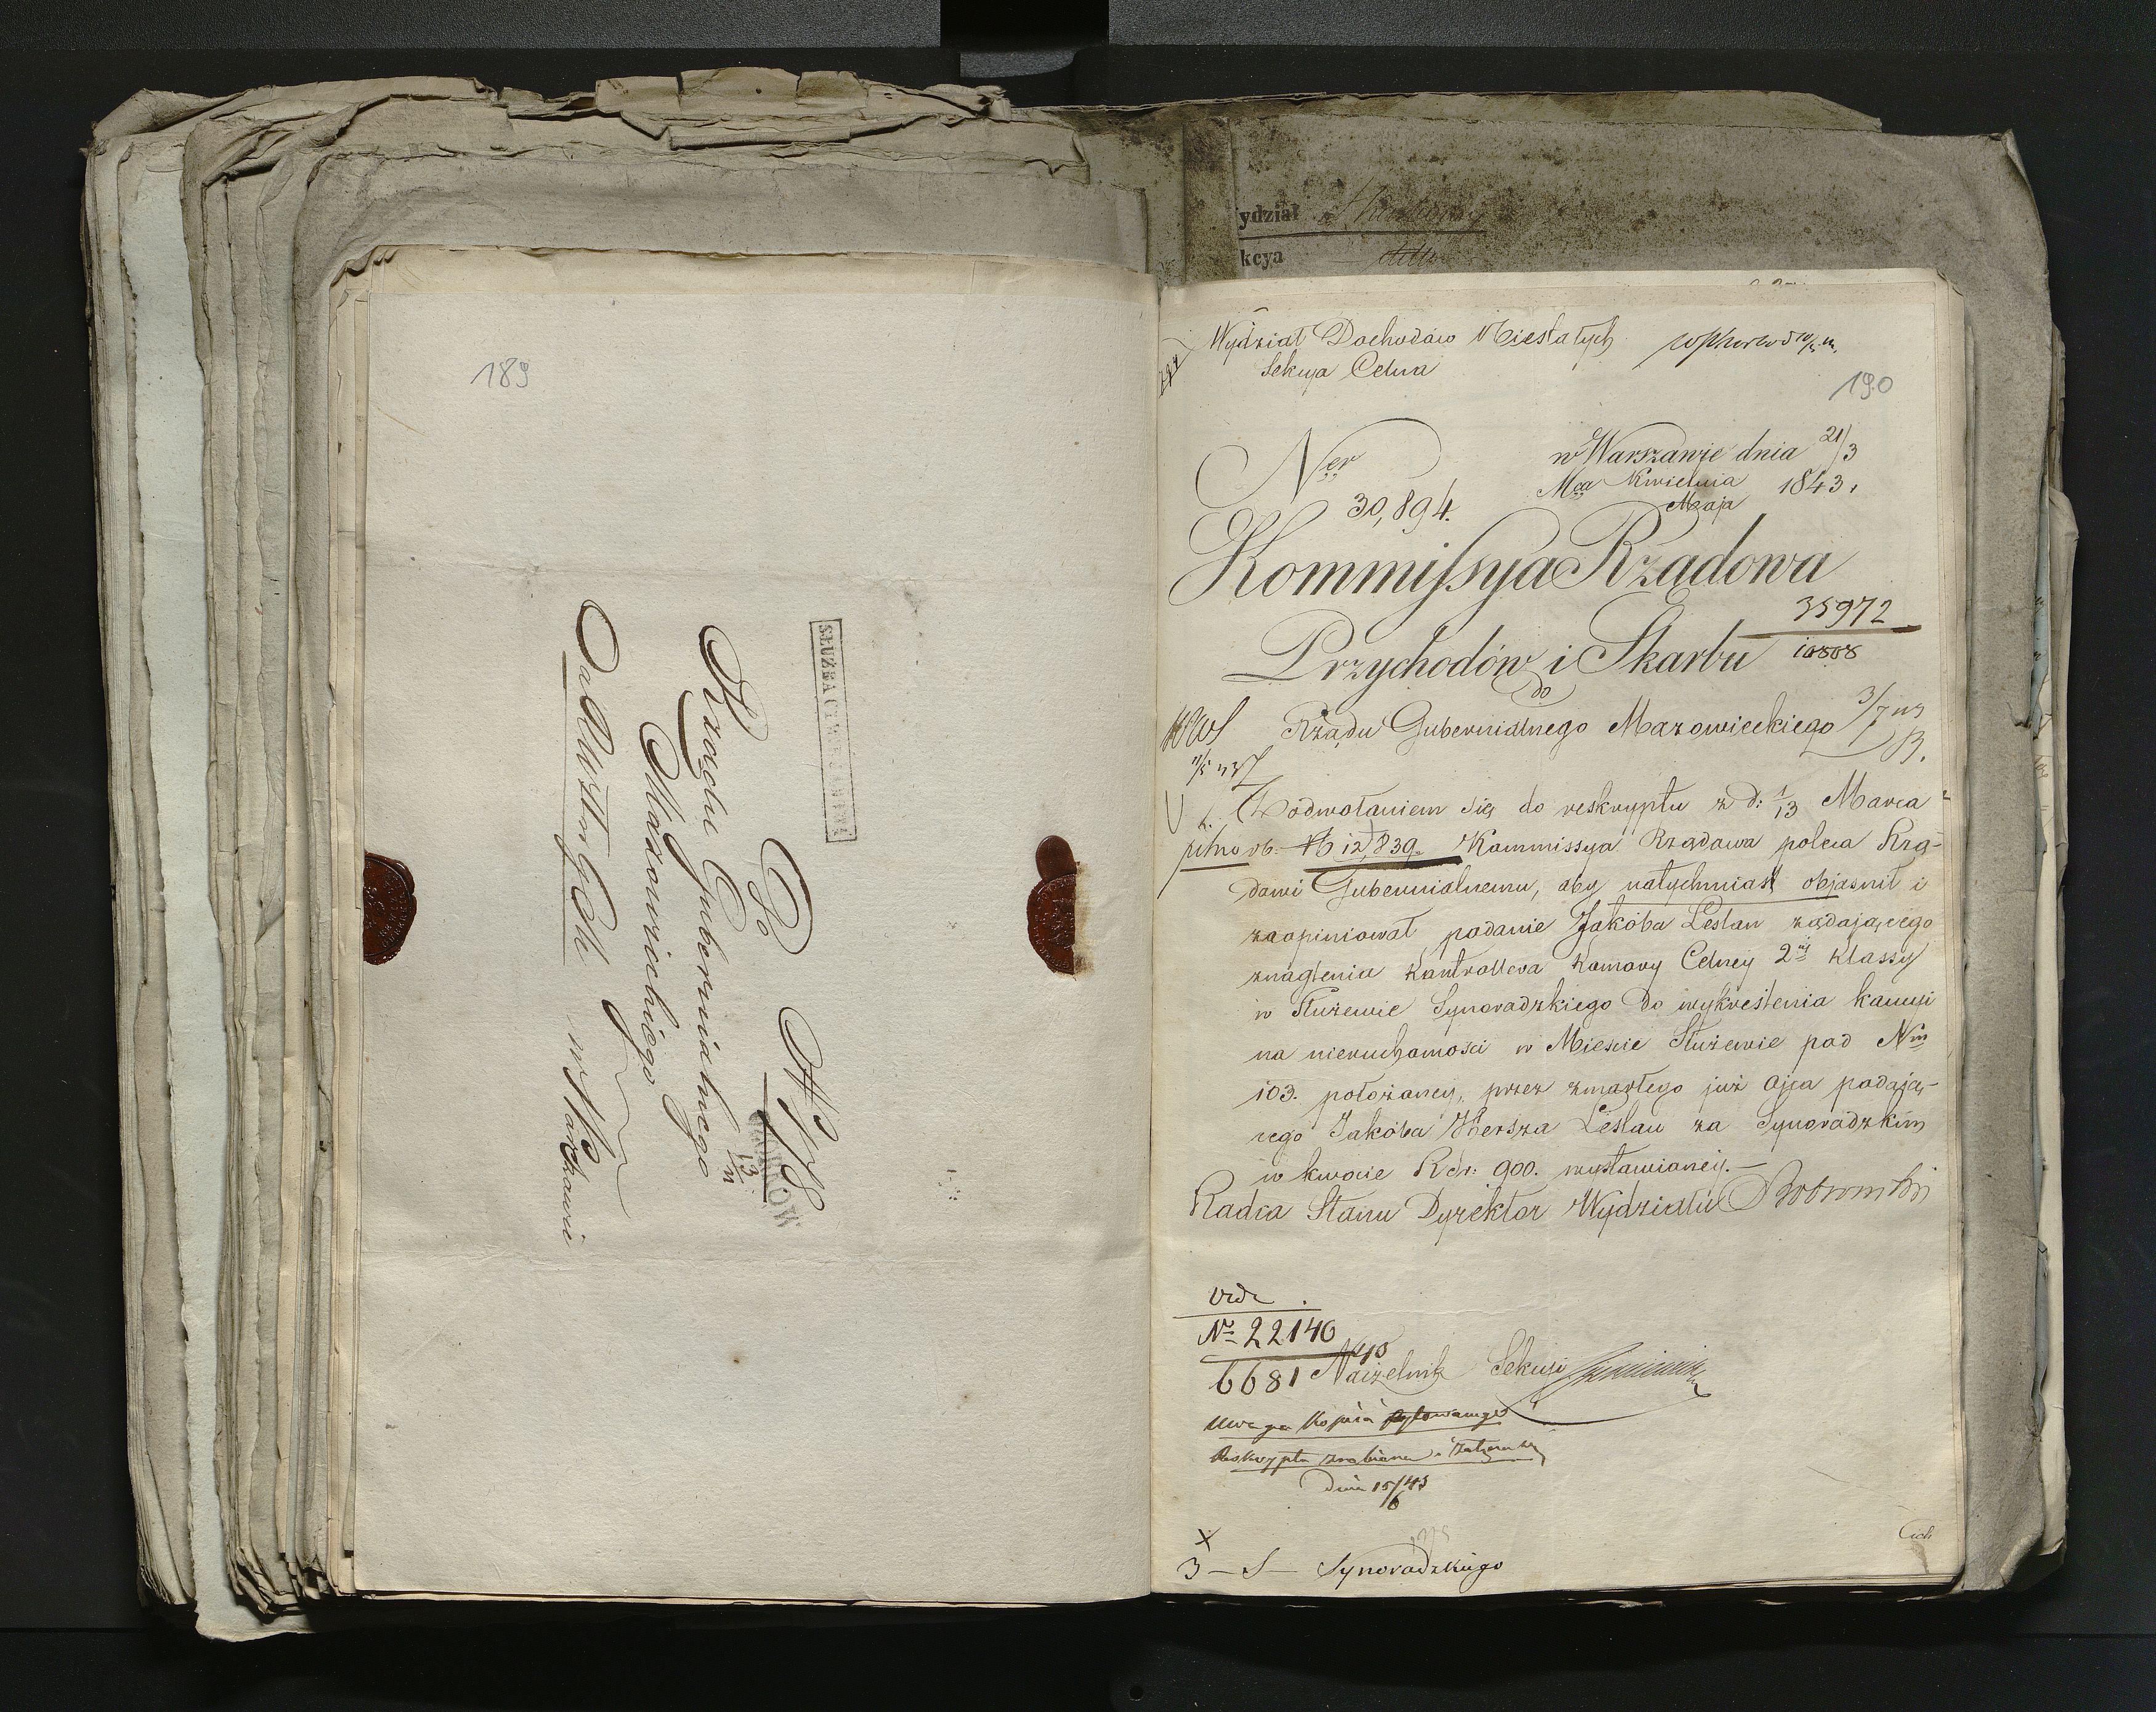 189
SŁUŻBA
Do № 78
Rządu Gubernialnego
Mazowieckiego
w Warszawie
13
ydział
kcya
Wydział Dochodów Niestałych
Sekcya Celna
190
Ner
30,894.
w Warszawie dnia 21/3
Mca Kwietnia
Maja 1843.
Kommissya Rządowa
Przychodów i Skarbu
35972
10808
do
Rządu Gubernialnego Mazowieckiego
Z odwołaniem się do reskryptu z d: 1/13 Marca
pilno rb. № 12,839. Kommissya Rządowa poleca Rzą-
dowi Gubernialnemu, aby natychmiast objaśnił i
zaopiniował podanie Jakóba Leslau żądającego
znaglenia Kontrollera Komory Celney 2éj Klassy
w Służewie Synoradzkiego do wykreślenia kaucyi
na nieruchomości w Mieście Służewie pod Nm
103. położoney, przez zmarłego już Ojca podają-
cego Jakóba Hersza Leslau za Synoradzkim
w kwocie Rsr: 900. wystawioney.—
Radca Stanu Dyrektor Wydziału
Vide
№ 22140
6681
Naczelnik Sekcyi
Uwaga Kopia
Reskryptu zrobiona i
dnia 15/6 43
X
3 — S — Synoradzkiego
Cich